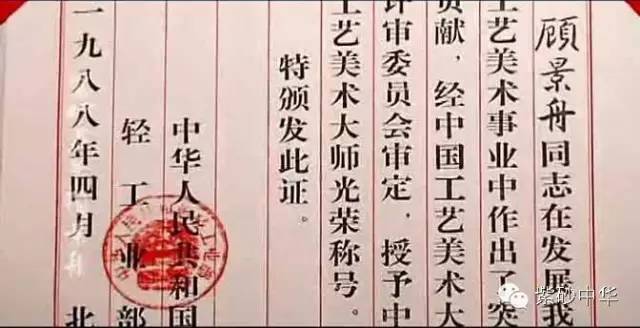 顾景舟同志在发展我
工艺美术事业中作出了突
贡献，经中国工艺美术大
评审委员会审定，授予中
工艺美术大师光荣称号。
特颁发此证。
中华人民共和国
轻工业部
一九八八年四月 北
紫砂中华